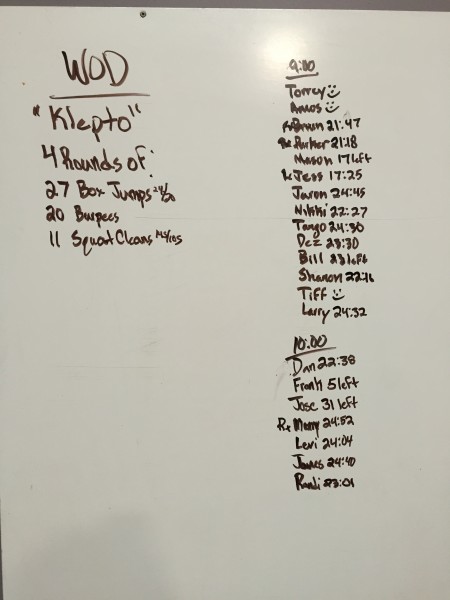 WOD
"Klepto"
4 Rounds of:
27 Box Jumps 24/20
20 Burpees
11 Squat Cleans 145/105
9:00
Torrey
Amos
Rx Brown 21:47
Rx Parker 21:18
Mason 17 left
Rx Jess 17:25
Jaron 24:45
Nikki 22:27
Tango 24:30
Dez 23:30
Bill 23 left
Sharon 22:16
Tiff
Larry 24:32
10:00
Dan 22:38
Frank 5 left
Jose 31 left
Rx Manny 24:52
Levi 24:04
James 24:40
23:01